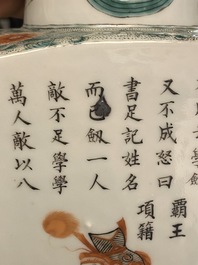 又不成怒曰
書足記姓名
而已劒一人
敵不足學學
萬人敵以八
霸王
項籍